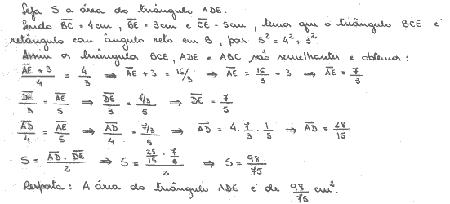 Seja S a área do triângulo ADE.
Sendo BC = 4cm, BE = 3cm e CE = 5cm, temos que o triângulo BCE é
retângulo com ângulo reto em B, pois 5² = 4² + 3².
Assim os triângulos BCE, ADE e ABC são semelhantes e obtemos:
AE + 3 / 4 = 4/3 ⇒ AE + 3 = 16/3 ⇒ AE = 16/3 - 3 ⇒ AE = 7/3
DE/3 = AE/5 ⇒ DE/3 = 7/3 / 5 ⇒ DE = 7/5
AD/4 = AE/5 ⇒ AD/4 = 7/3 / 5 ⇒ AD = 4 . 7/3 . 1/5 ⇒ AD = 28/15
S = AD . DE / 2 ⇒ S = 28/15 . 7/5 / 2 ⇒ S = 98/75
Resposta: A área do triângulo ADE é de 98/75 cm².